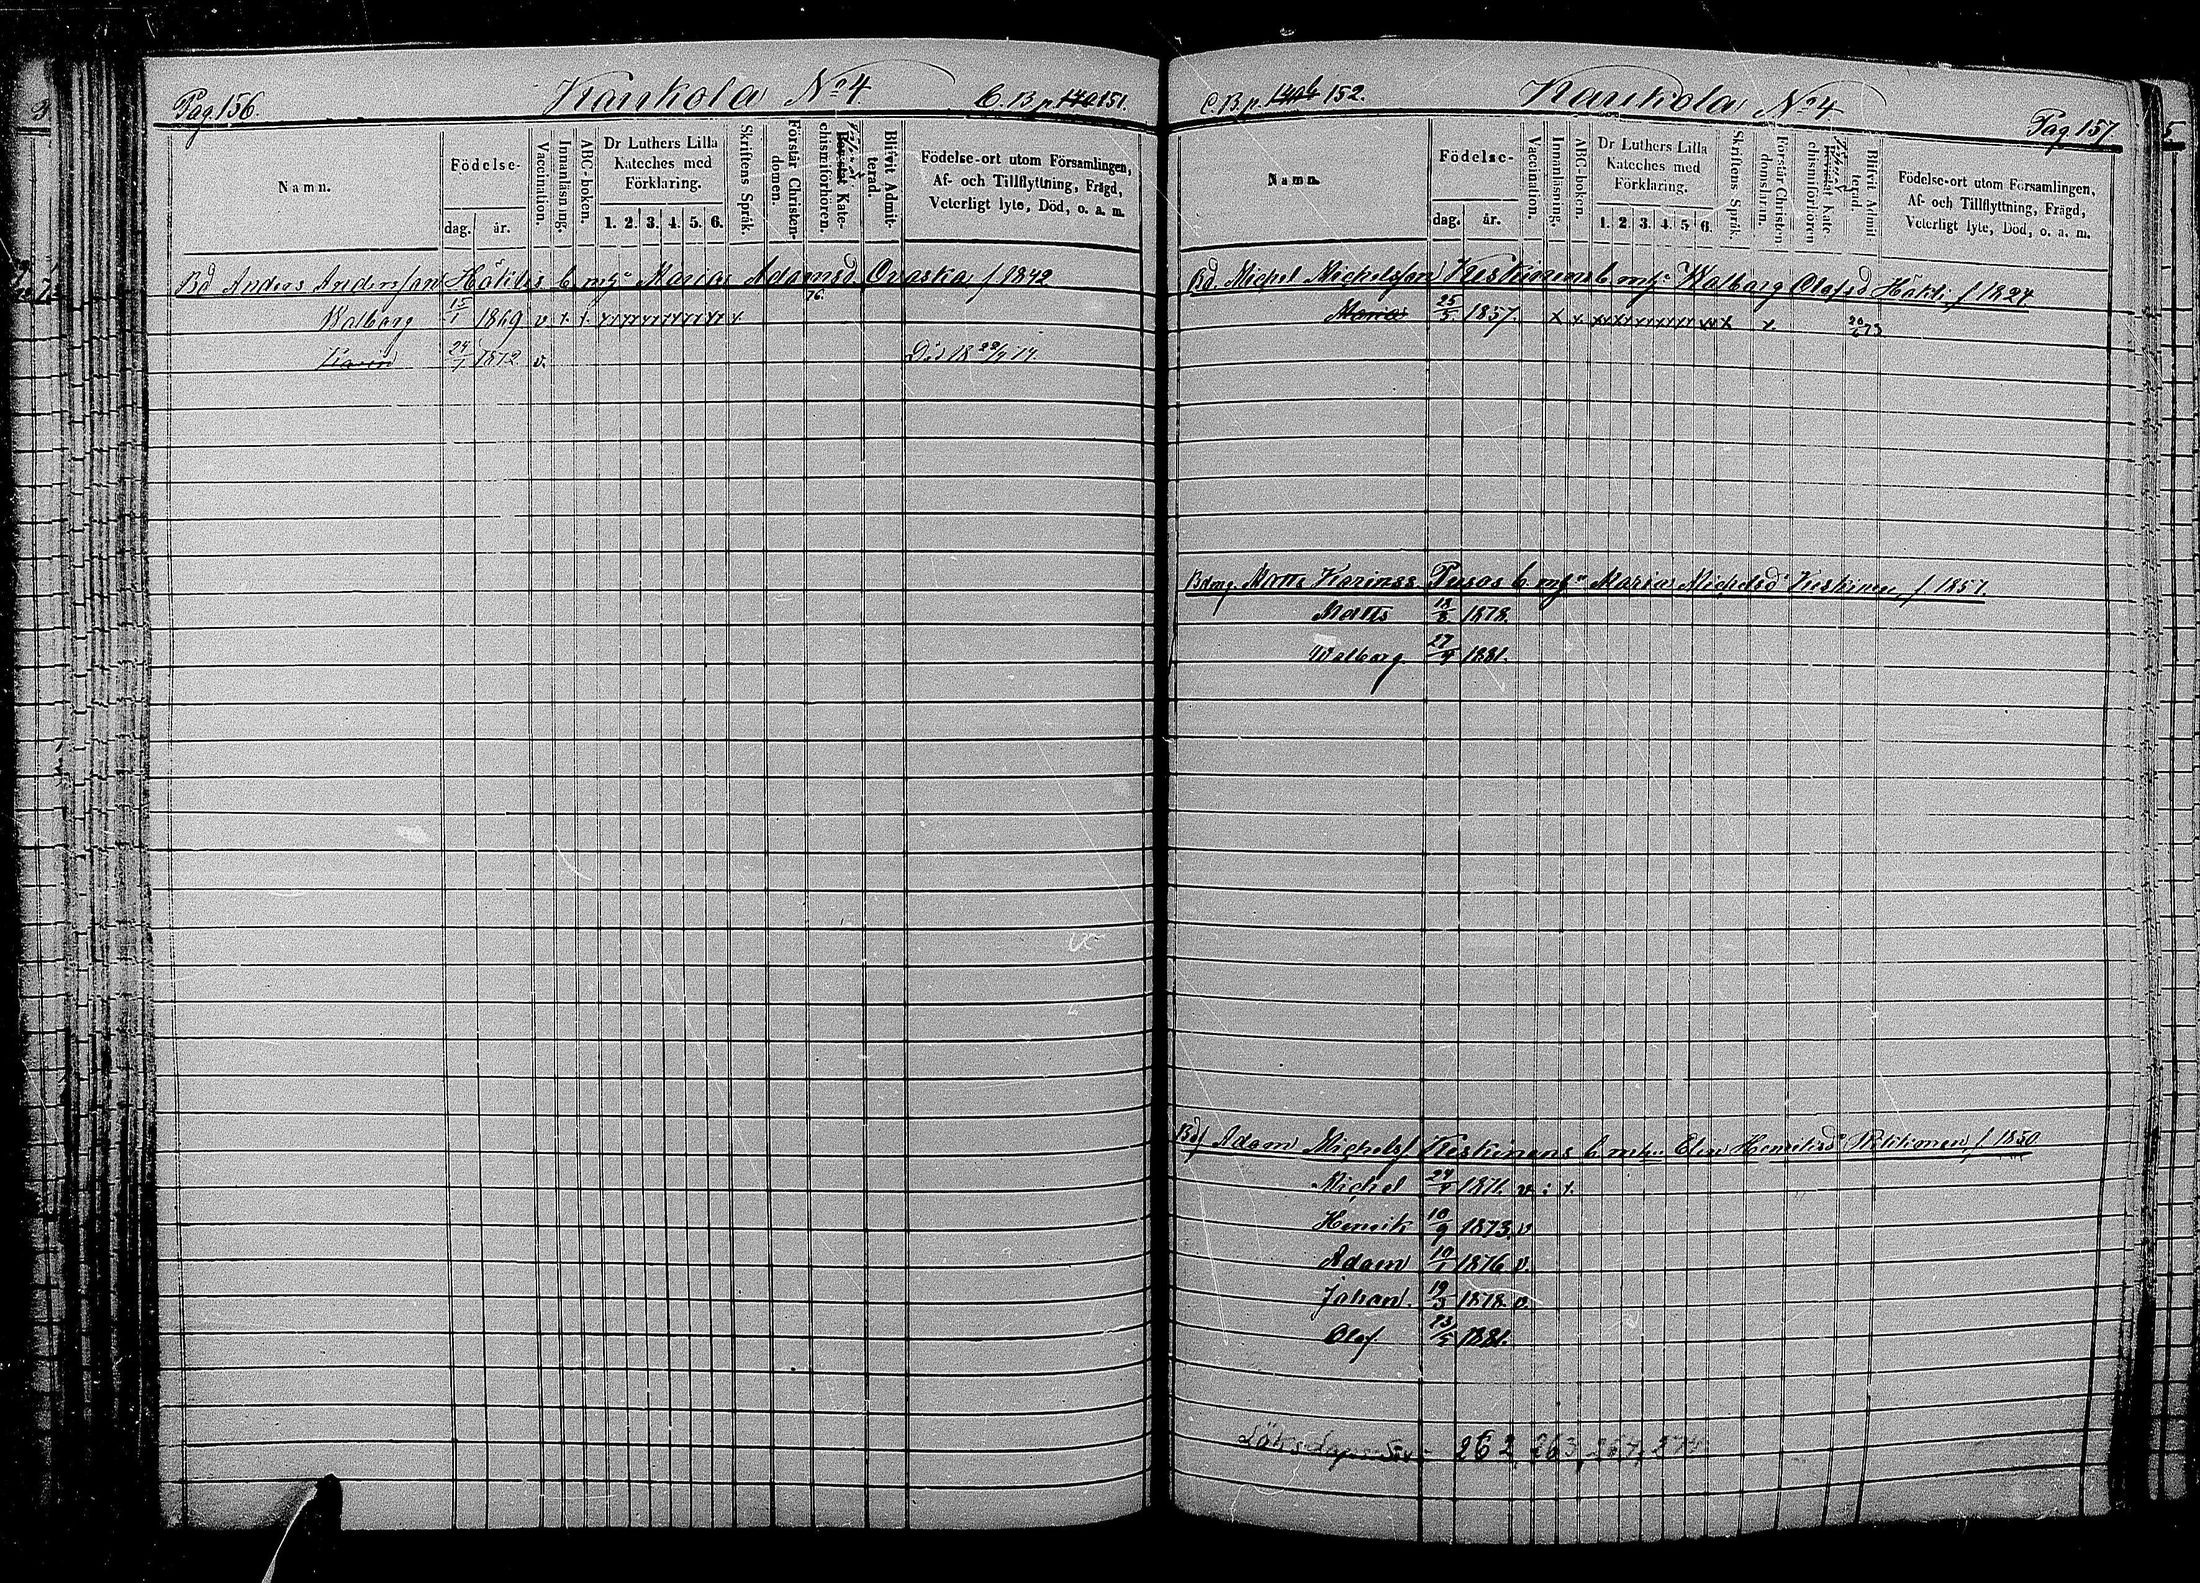 Pag. 156. Kaukola No 4. C.B. p. 140 151.
Namn. Födelse- dag. år. Vaccination. Innanläsning. ABC-boken. Dr Luthers Lilla Kateches med Förklaring. 1. 2. 3. 4. 5. 6. Skriftens Språk. Förstår Christendomen. Bevistat Katechismiförhören. Blifvit Admitterad. Födelse-ort utom Församlingen, Af- och Tillflyttning, Frägd, Veterligt lyte, Död, o. a. m.
Bd Anders Andersson Hölttös b. mf: Maria Adamsd Ovaska f 1842
76.
Walborg 15/1 1869 v x x
Karin 24/1 1872 v. Död 18 22/7 74.
C.B. p. 152. Kaukola No 4 Pag 157
Namn. Födelse- dag. år. Vaccination. Innanläsning. ABC-boken. Dr Luthers Lilla Kateches med Förklaring. 1. 2. 3. 4. 5. 6. Skriftens Språk. Förstår Christendomsläran. Bevistat Katechismiförhören Blifvit Admitterad. Födelse-ort utom Församlingen, Af- och Tillflyttning, Frägd, Veterligt lyte, Död, o. a. m.
Bd. Michel Michelsson Keskinens b. mf: Walborg Olofsd f 1824
Maria 25/3 1857. x x x
Bdmg. Matts Karinss Pusas b. mf: Maria Michelsd Keskinen, f 1857.
Matts 18/8 1878.
Walborg. 27/4 1881.
Bdf Adam Michelsf Keskinens b. m hu: Elin Henriksd f 1850
Michel 24/4 1871. v x
Henrik 10/9 1873. v
Adam 10/1 1876 v.
Johan. 19/3 1878. v.
Olof 23/5 1881.
262, 263, 267, 274